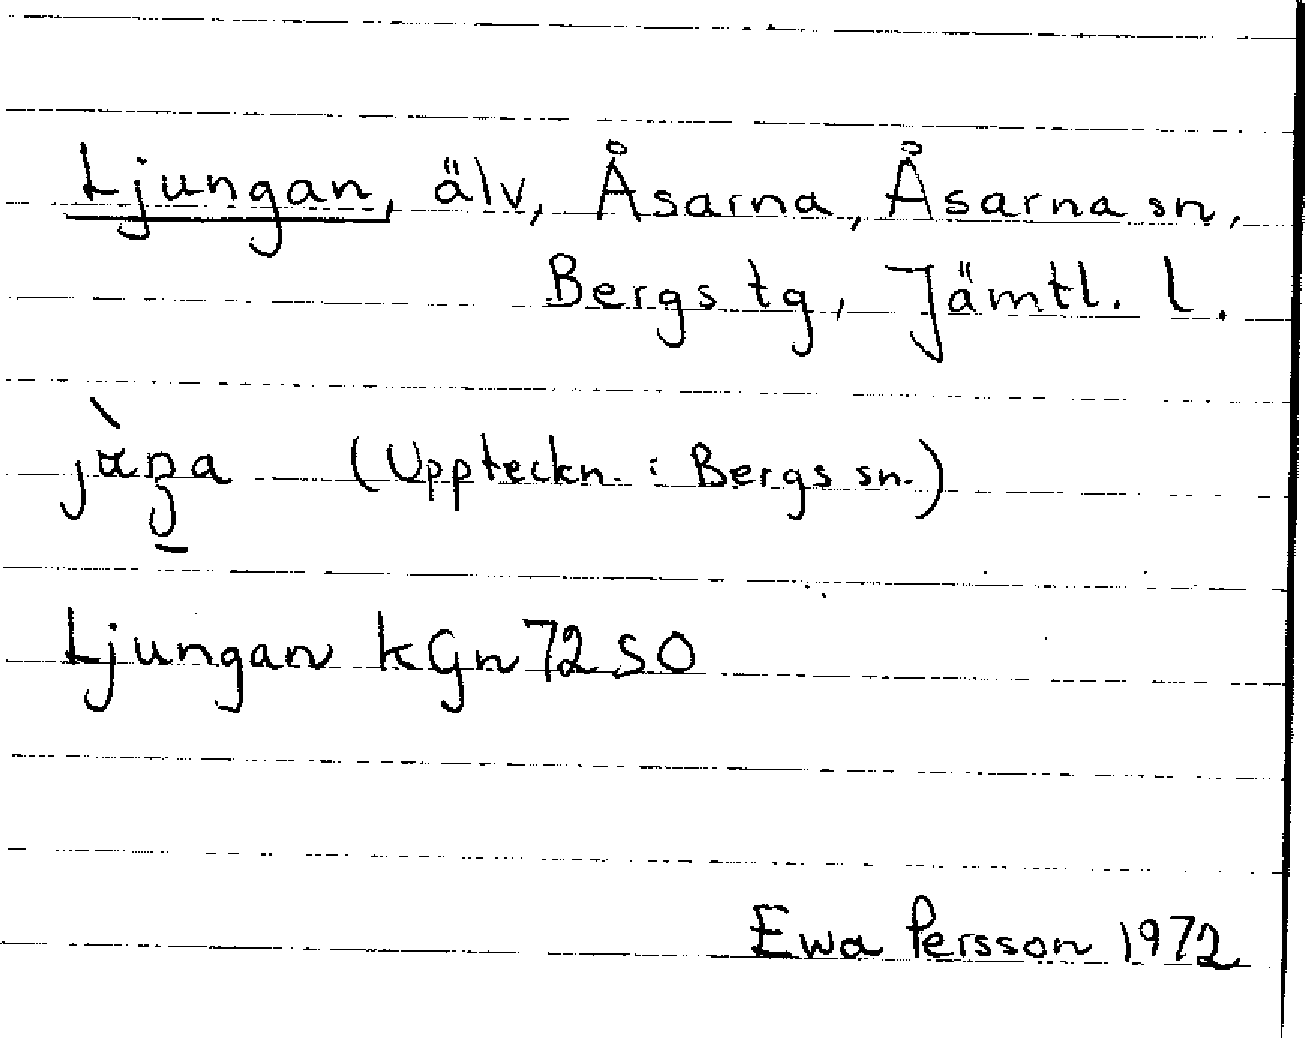 Ljungan, älv, Åsarna, Åsarna sn,
Bergs tg, Jämtl. l.
(Uppteckn. i Bergs sn.)
Ljungan kGn 72 SO
Ewa Persson 1972